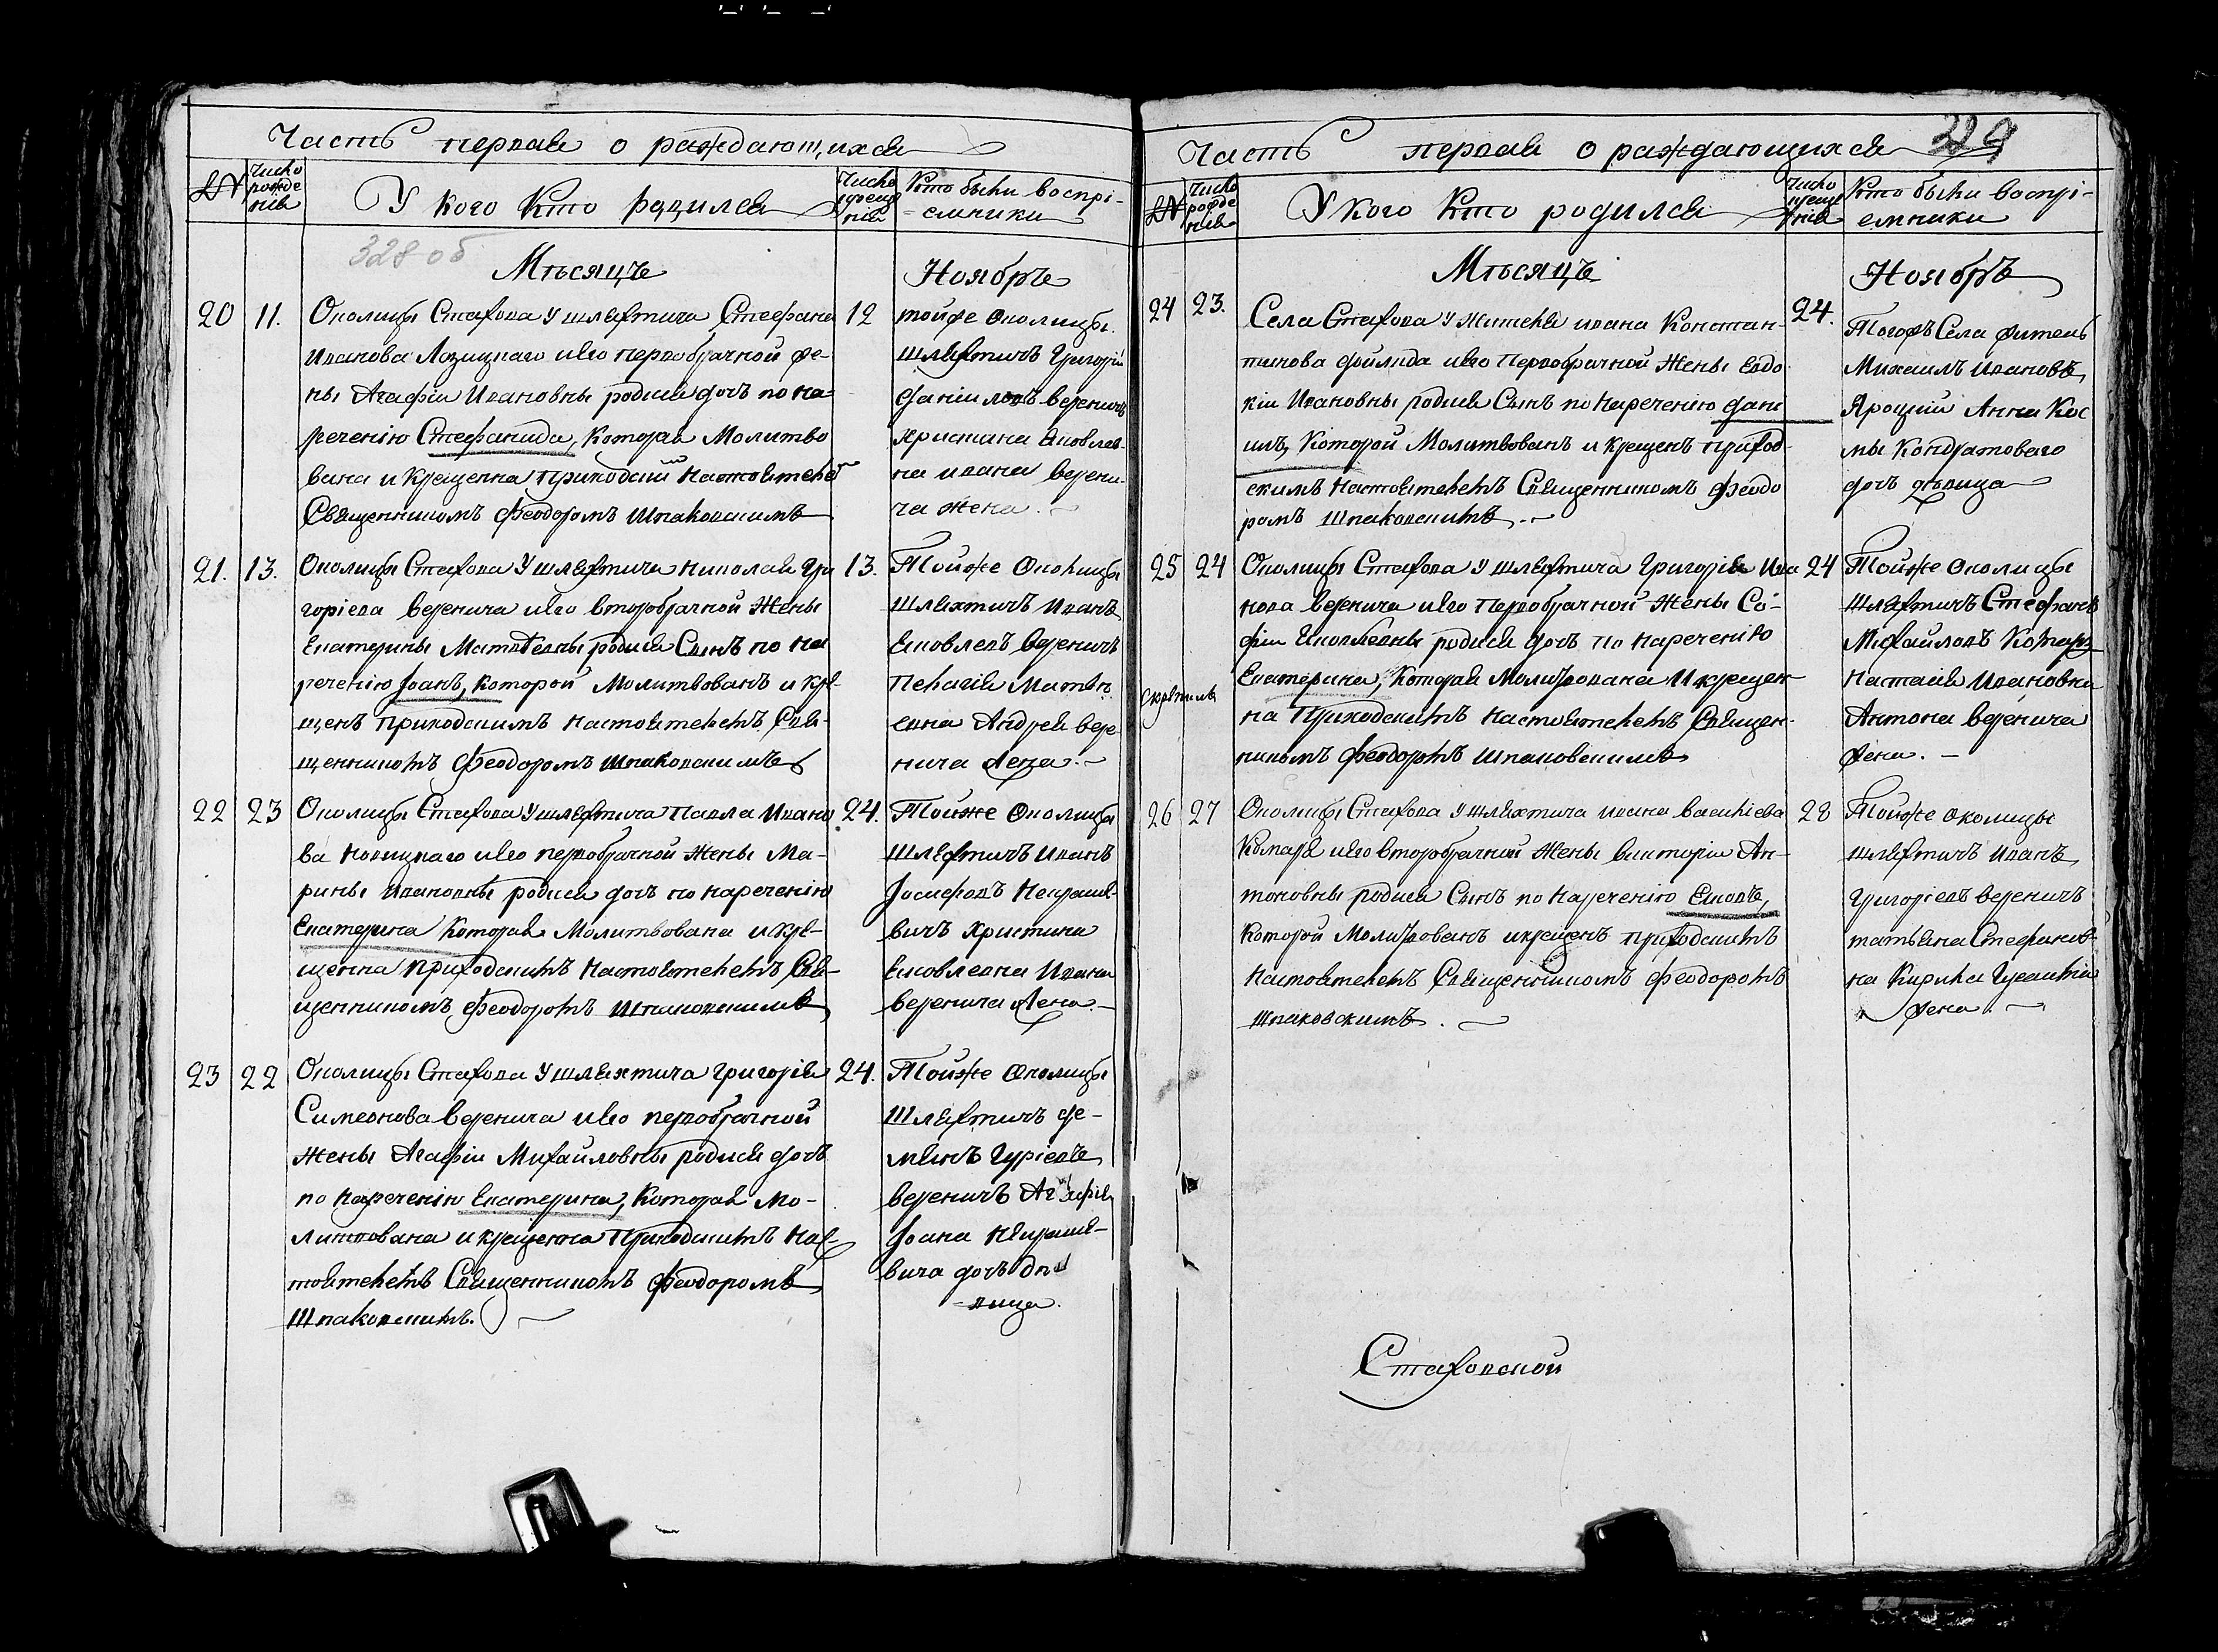 Часть первая о раждающихся
№
Число рожденія
У кого кто родился
Число крещенія
Кто были воспрі-
емники
328 об
Мѣсяцъ
Ноябрь
20
11.
Околицы Стахова у шляхтича Стефана
Иванова Лозицкаго и его первобрачной же-
ны Агафіи Ивановны родися дочь по на-
реченію Стефанида, которая молитво
вана и крещенна приходскій настоятелемъ
Священникомъ Феодоромъ Шпаковскимъ
12
тойже околицы
шляхтичъ Григорій
Даніиловъ Вереничъ
Христина Яковлев-
на Ивана Верени-
ча жена.
21.
13.
Околицы Стахова у шляхтича Николая Гри
горіева Веренича и его второбрачной жены
Екатерины Матвѣевны родися сынъ по на
реченію Іоанъ, которой молитвованъ и кре-
щенъ приходскимъ настоятелемъ Свя-
щенникомъ Феодоромъ Шпаковскимъ
13.
Тойже околицы
шляхтичъ Иванъ
Яковлевъ Вереничъ
Пелагія Матвѣ
евна Андрея Вере
нича жена.
22
23
Околицы Стахова у шляхтича Павла Ивано
ва Новицкаго и его первобрачной жены Ма-
рины Ивановны родися дочь по нареченію
Екатерина которая молитвована и кре-
щенна приходскимъ настоятелемъ Свя-
щенникомъ Феодоромъ Шпаковскимъ
24.
Тойже околицы
шляхтичъ Иванъ
Іосифовъ Некраше-
вичъ Христина
Яковлевна Ивана
Веренича жена.
23
22
Околицы Стахова у шляхтича Григорія
Симеонова Веренича и его первобрачной
жены Агафіи Михайловны родися дочь
по нареченію Екатерина, которая мо-
литвована и крещенна приходскимъ нас-
тоятелемъ Священникомъ Феодоромъ
Шпаковскимъ.
24.
Тойже околицы
шляхтичъ Де-
мянъ Гуріевъ
Вереничъ Агафія
Іоана Некраше-
вича дочь дѣ
вица.
Часть первая о раждающихся
329
№
Число рожденія
У кого кто родился
Число крещенія
Кто были воспрі-
емники
Мѣсяцъ
Ноябрь
24
23.
Села Стахова у жителя Ивана Констан-
тинова и его первобрачной жены Евдо
кіи Ивановны родися сынъ по нареченію Дані
илъ, которой молитвованъ и крещенъ приход-
скимъ настоятелемъ Священникомъ Феодо
ромъ Шпаковскимъ.
24.
Тогожъ села житель
Михаилъ Ивановъ
Яроцкій Анна Кос
мы Кондратоваго
дочь дѣвица
25
24
Околицы Стахова у шляхтича Григорія Ива
нова Веренича и его первобрачной жены Со-
фіи Яковлевны родися дочь по нареченію
Екатерина, которая молитвована и крещен-
на приходскимъ настоятелемъ Священ-
никомъ Феодоромъ Шпаковскимъ
24
Тойже околицы
шляхтичъ Стефанъ
Михайловъ Комаръ
Настасія Ивановна
Антона Веренича
жена.
26
27
Околицы Стахова у шляхтича Ивана Василіева
Комара и его второбрачной жены Викторіи Ан-
тоновны родися сынъ по нареченію Яковъ,
которой молитвованъ и крещенъ приходскимъ
настоятелемъ Священникомъ Феодоромъ
Шпаковскимъ.
28
Тойже околицы
шляхтичъ Иванъ
Григоріевъ Вереничъ
Татьяна Стефанов-
на Кирила
жена.
Стаховской